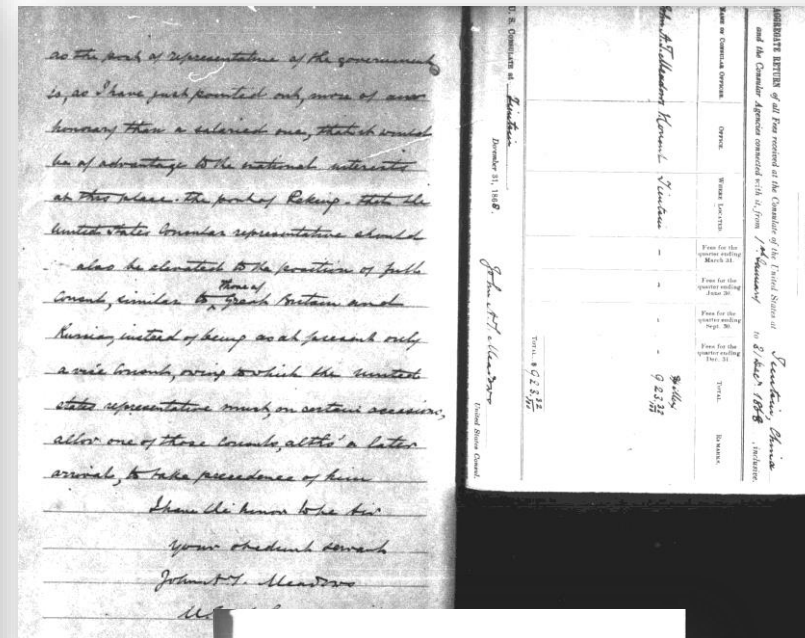 as the post of representative of the government
is, as I have just pointed out, more of an
honorary than a salaried one, that it would
be of advantage to the national interests
at this place. the port of Peking. that the
United States Consular representative should
also be elevated to the position of full
Consul, similar to those of Great Britain and
Russia, instead of being as at present only
a vice Consul, owing to which the United
States representative must, on certain occasions,
allow one of those Consuls, altho' a later
arrival, to take precedence of him
I have the honor to be Sir
Your obedient servant
John A. T. Meadows
AGGREGATE RETURN of all Fees received at the Consulate of the United States at Tientsin, China
and the Consular Agencies connected with it, from 1st January to 31 Dec 1868, inclusive.
NAME OF CONSULAR OFFICER. OFFICE. WHERE LOCATED. Fees for the quarter ending March 31. Fees for the quarter ending June 30. Fees for the quarter ending Sept. 30. Fees for the quarter ending Dec. 31. TOTAL. REMARKS.
John A. T. Meadows Consul Tientsin - - - - 923.32
TOTAL, $ 923.32
U. S. CONSULATE at Tientsin
December 31, 1868.
John A. T. Meadows
United States Consul.